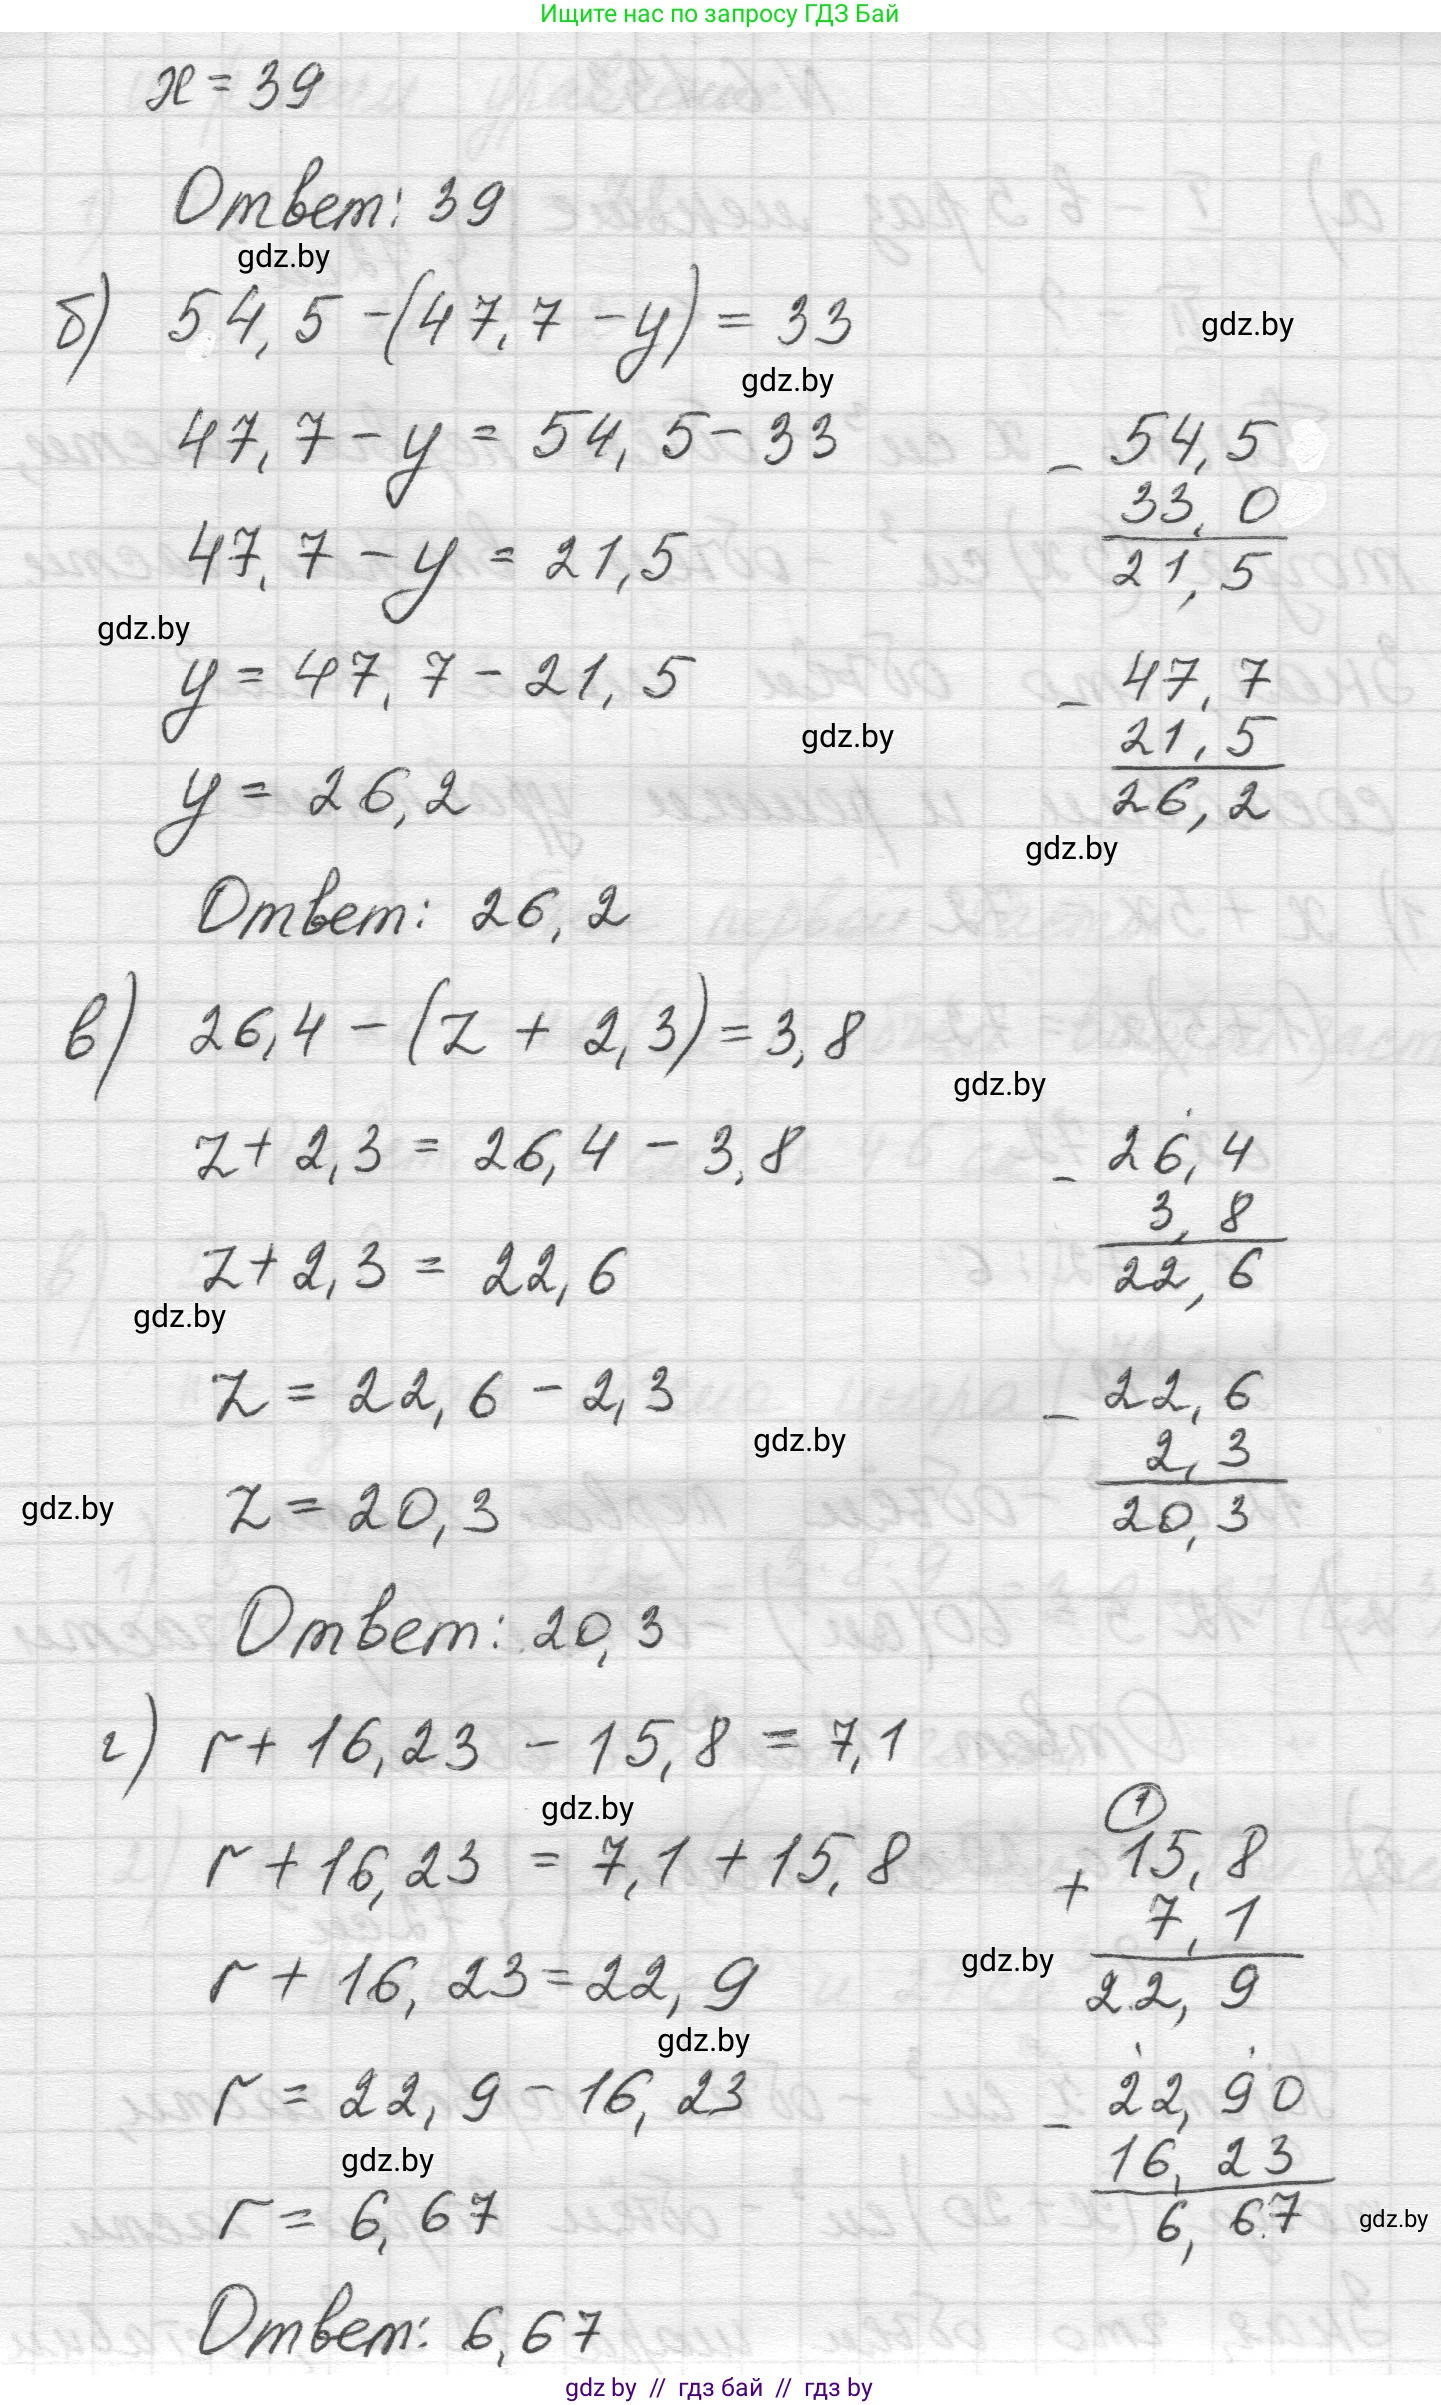 Ищите нас по запросу ГДЗ Бай
x = 39
Ответ: 39
gdz.by
б) 54,5 - (47,7 - y) = 33
gdz.by
gdz.by
47,7 - y = 54,5 - 33
- 54,5
33,0
21,5
47,7 - y = 21,5
gdz.by
y = 47,7 - 21,5
- 47,7
21,5
26,2
gdz.by
y = 26,2
gdz.by
Ответ: 26,2
в) 26,4 - (z + 2,3) = 3,8
gdz.by
z + 2,3 = 26,4 - 3,8
- 26,4
3,8
22,6
z + 2,3 = 22,6
gdz.by
z = 22,6 - 2,3
- 22,6
2,3
20,3
gdz.by
z = 20,3
gdz.by
Ответ: 20,3
г) r + 16,23 - 15,8 = 7,1
gdz.by
r + 16,23 = 7,1 + 15,8
1
+ 15,8
7,1
22,9
gdz.by
r + 16,23 = 22,9
gdz.by
r = 22,9 - 16,23
- 22,90
16,23
6,67
gdz.by
gdz.by
r = 6,67
Ответ: 6,67
gdz by // гдз бай // гдз by